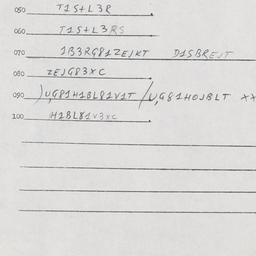 050 T1S+L3R
060 T1S+L3RS
070 1B3RG81ZEJKT D1SBREJT
080 ZEJG83XC
090 )U,G81H1BL82V1T /U,G81HOJBLT XX
100 H1BL81V3XC